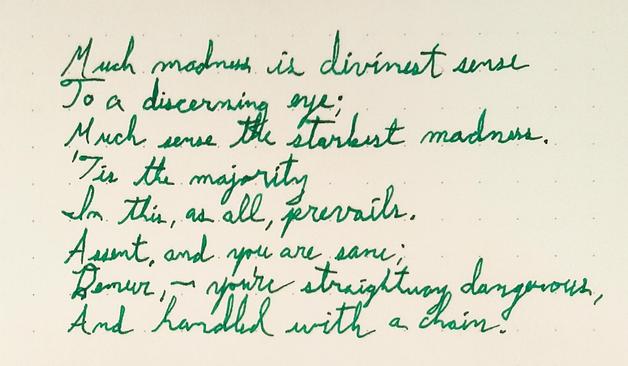 Much madness is divinest sense
To a discerning eye;
Much sense the starkest madness.
'Tis the majority
In this, as all, prevails.
Assent, and you are sane;
Demur, – you're straightway dangerous,
And handled with a chain.